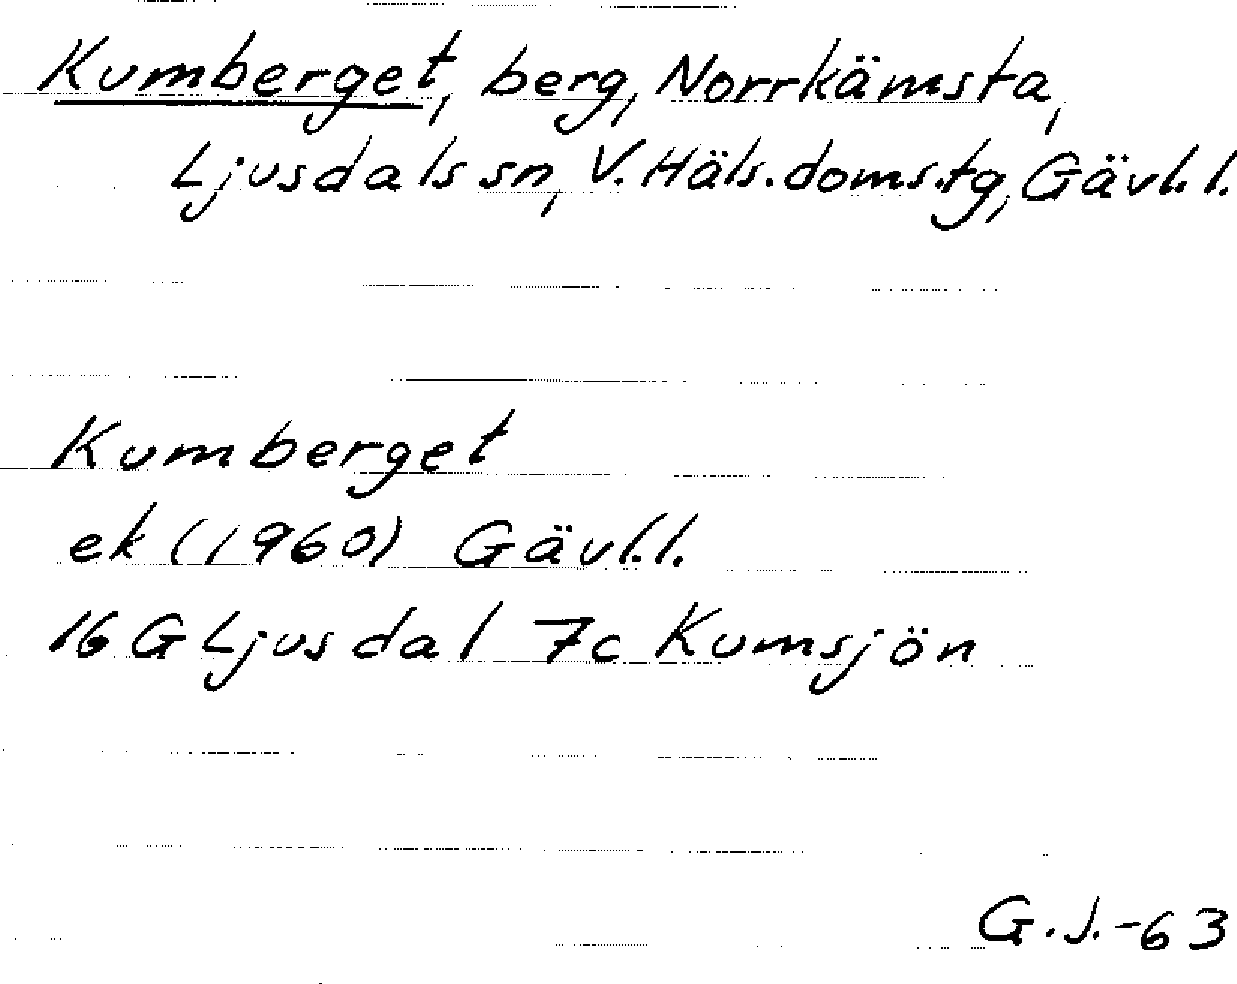 Kumberget, berg, Norrkämsta,
Ljusdals sn, V. Häls. doms.tg, Gävl.l.
Kumberget
ek (1960) Gävl.l.
16 G Ljusdal 7c Kumsjön
G.J.-63